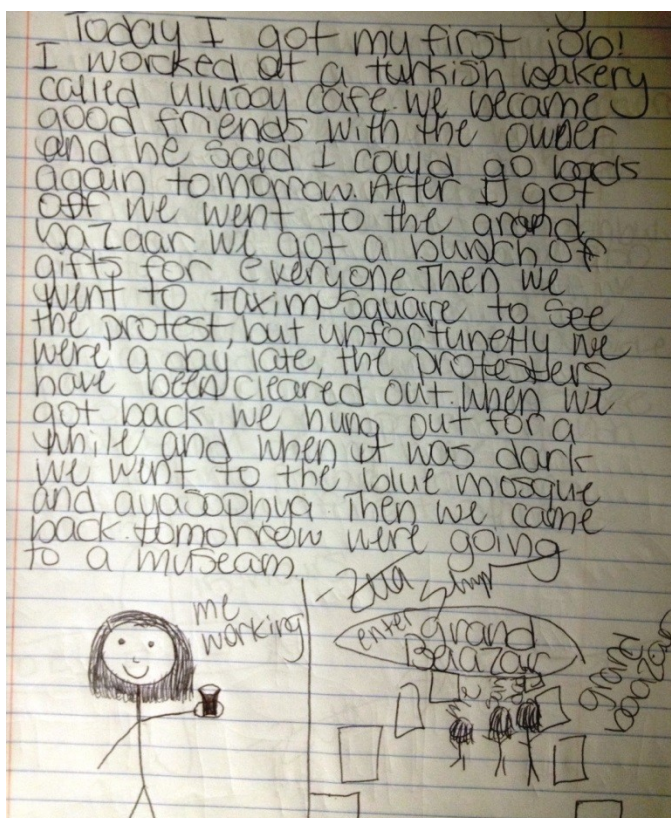 Today I got my first job!
I worked at a turkish bakery
called ulusoy cafe. we became
good friends with the owner
and he said I could go
again tomorrow. After I got
off we went to the grand
bazaar. we got a bunch of
gifts for everyone. Then we
went to taxim square to see
the protest, but unfortunetly we
were a day late, the protesters
have been cleared out. when we
got back we hung out for a
while and when it was dark
we went to the blue mosque
and ayasophya. Then we came
back. tomorrow were going
to a museam.
me
working
enter grand
Bejazar
me and
grand